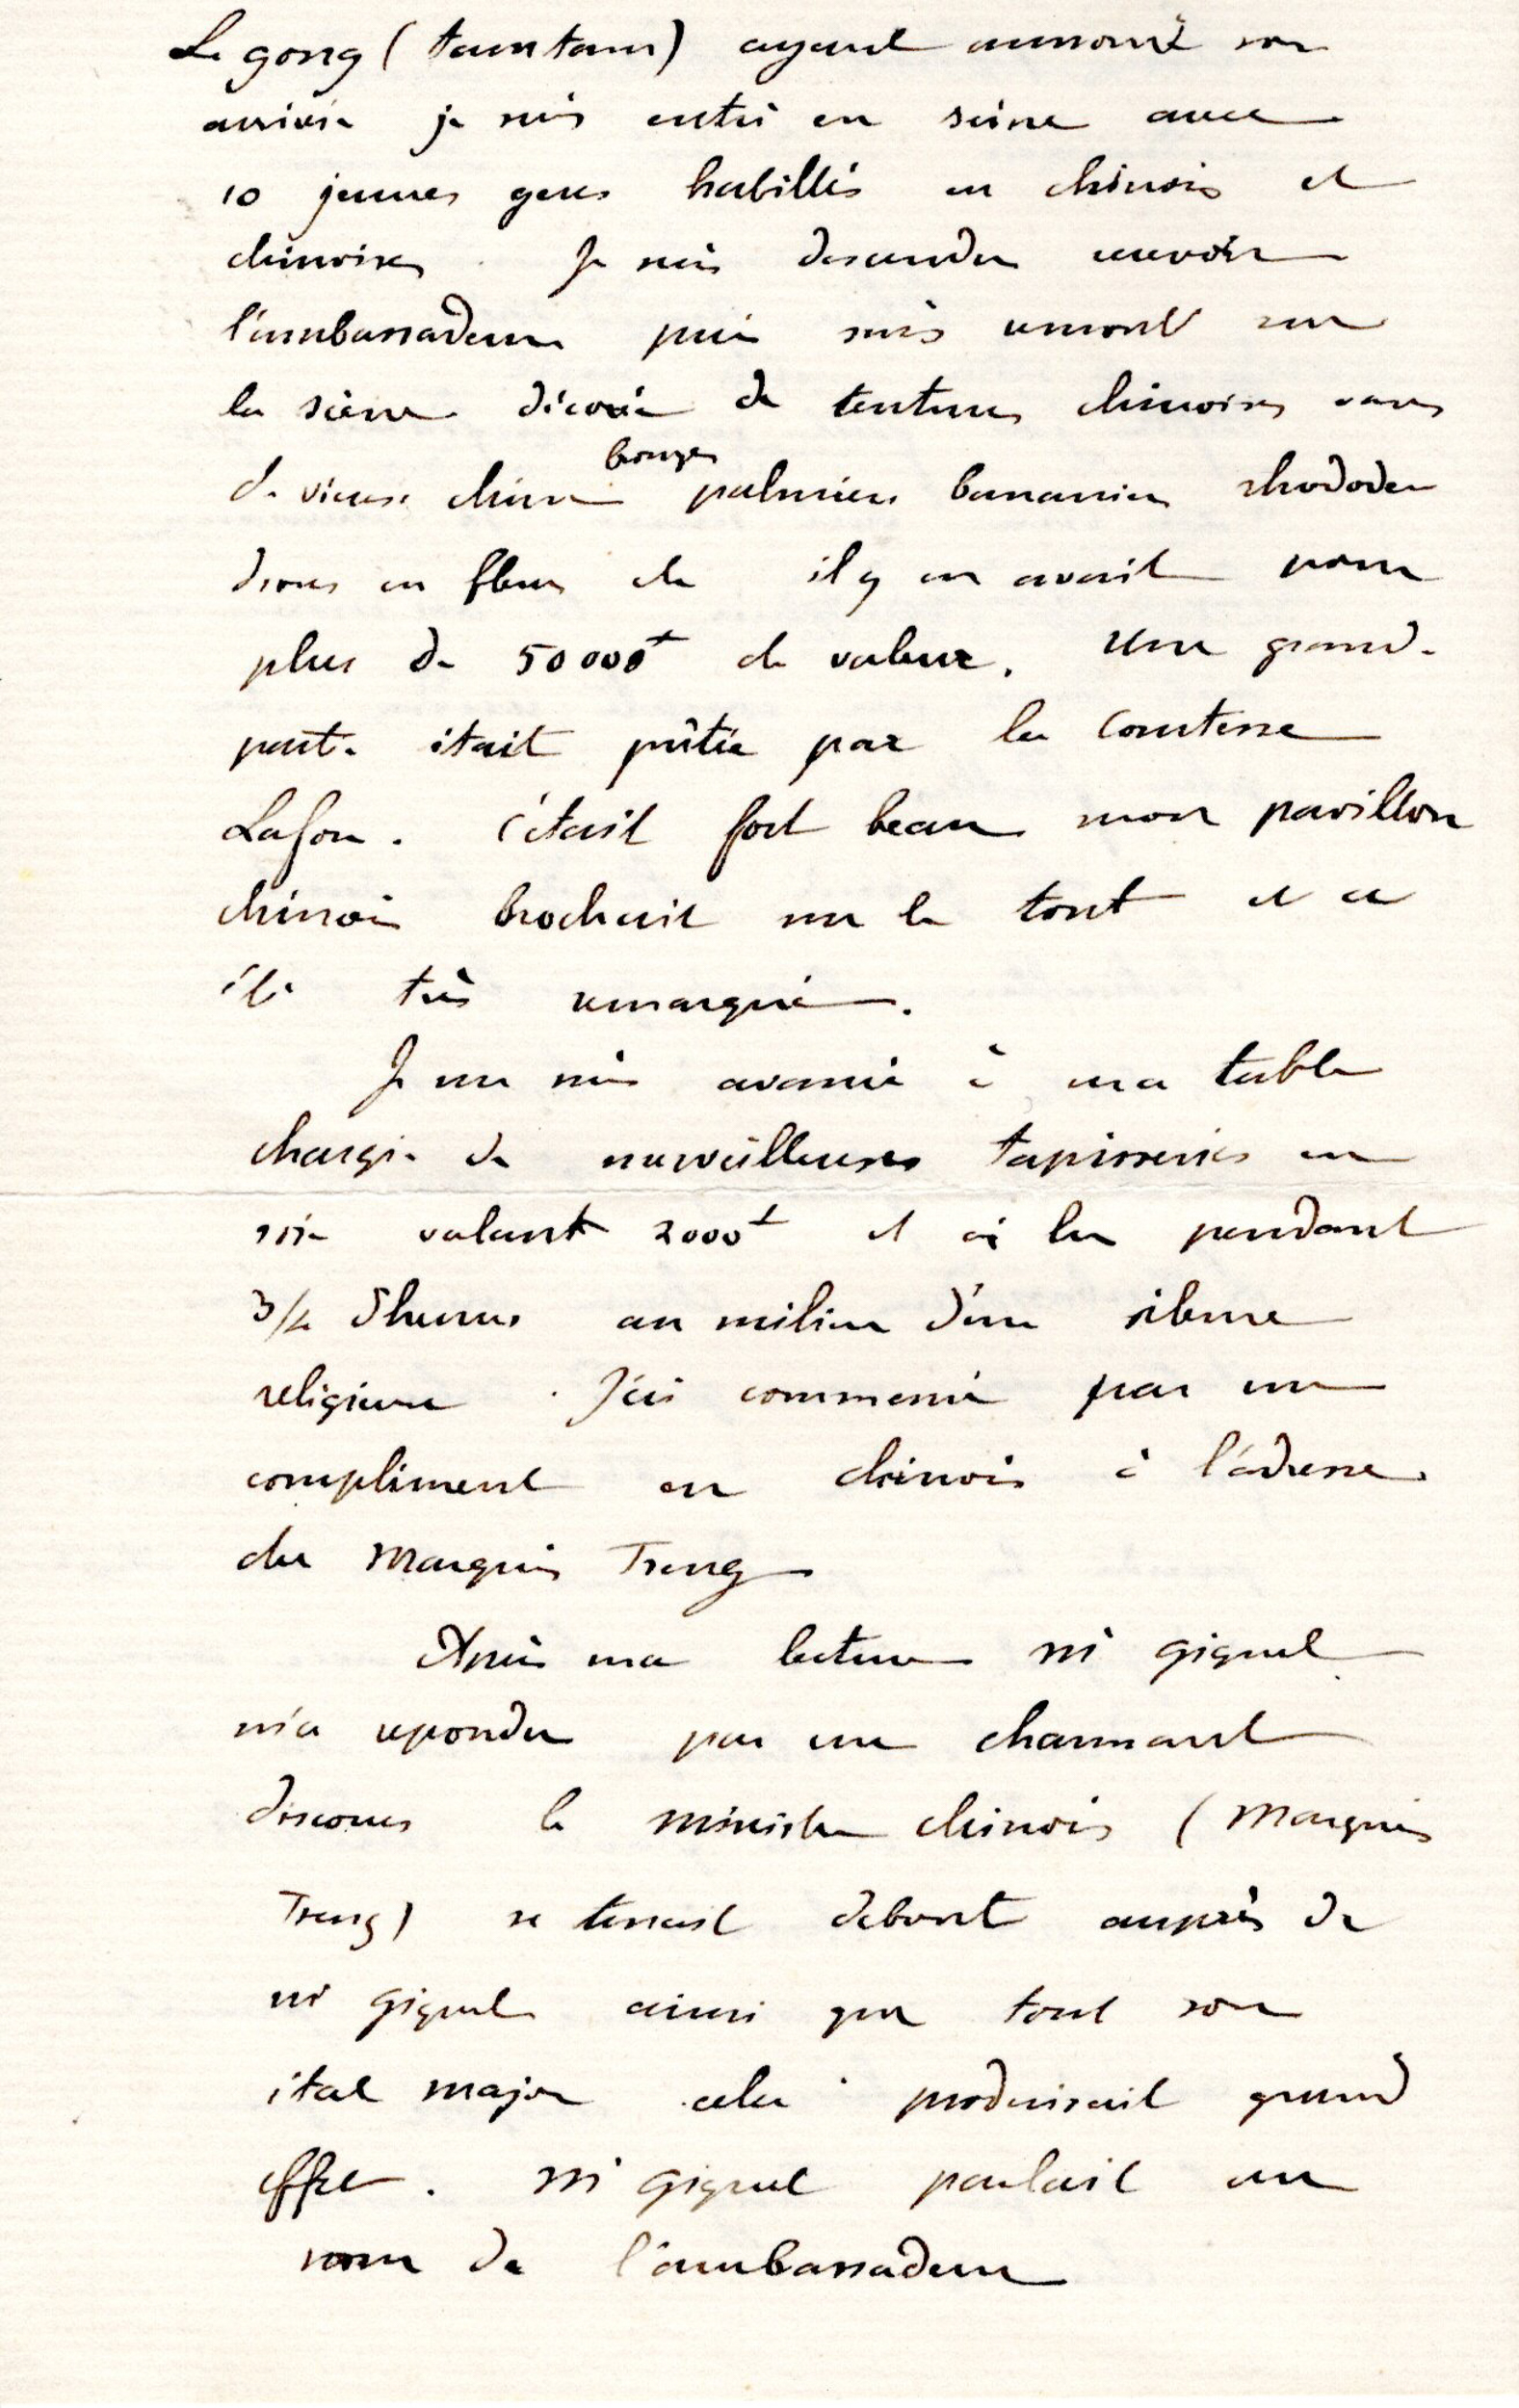 Le gong (tamtam) ayant annoncé son
arrivée je suis entré en scène avec
10 jeunes gens habillés en chinois et
chinoises. Je suis descendu recevoir
l'ambassadeur puis suis remonté sur
la scène décorée de tentures chinoises vases
de vieux chine bronzes palmiers bananiers rhododen
drons en fleurs etc il y en avait pour
plus de 50000f de valeur. Une grande
partie était prêtée par la Comtesse
Lafon. C'était fort beau mon pavillon
chinois brochait sur le tout et a
été très remarqué.
Je me suis avancé à ma table
chargée de merveilleuses tapisseries en
soie valant 2000f et ai lu pendant
3/4 d'heures au milieu d'un silence
religieux. J'ai commencé par un
compliment en chinois à l'adresse
du Marquis Tseng
Après ma lecture Mr Giquel
m'a repondu par un charmant
discours le ministre chinois (Marquis
Tseng) se tenait debout auprès de
Mr Giquel ainsi que tout son
état major cela produisait grand
effet. Mr Giquel parlait au
nom de l'ambassadeur